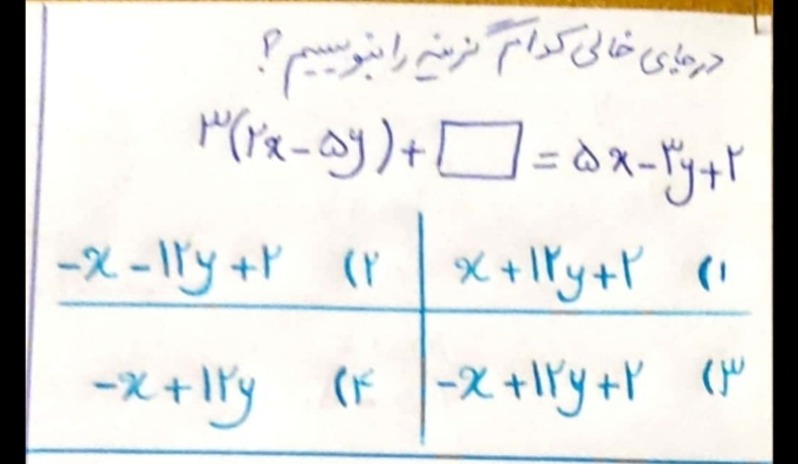 در جای خالی کدام گزینه را بنویسیم؟
۳(۲x-۵y)+□=۵x-۳y+۲
۱) x+۱۲y+۲
۲) -x-۱۲y+۲
۳) -x+۱۲y+۲
۴) -x+۱۲y